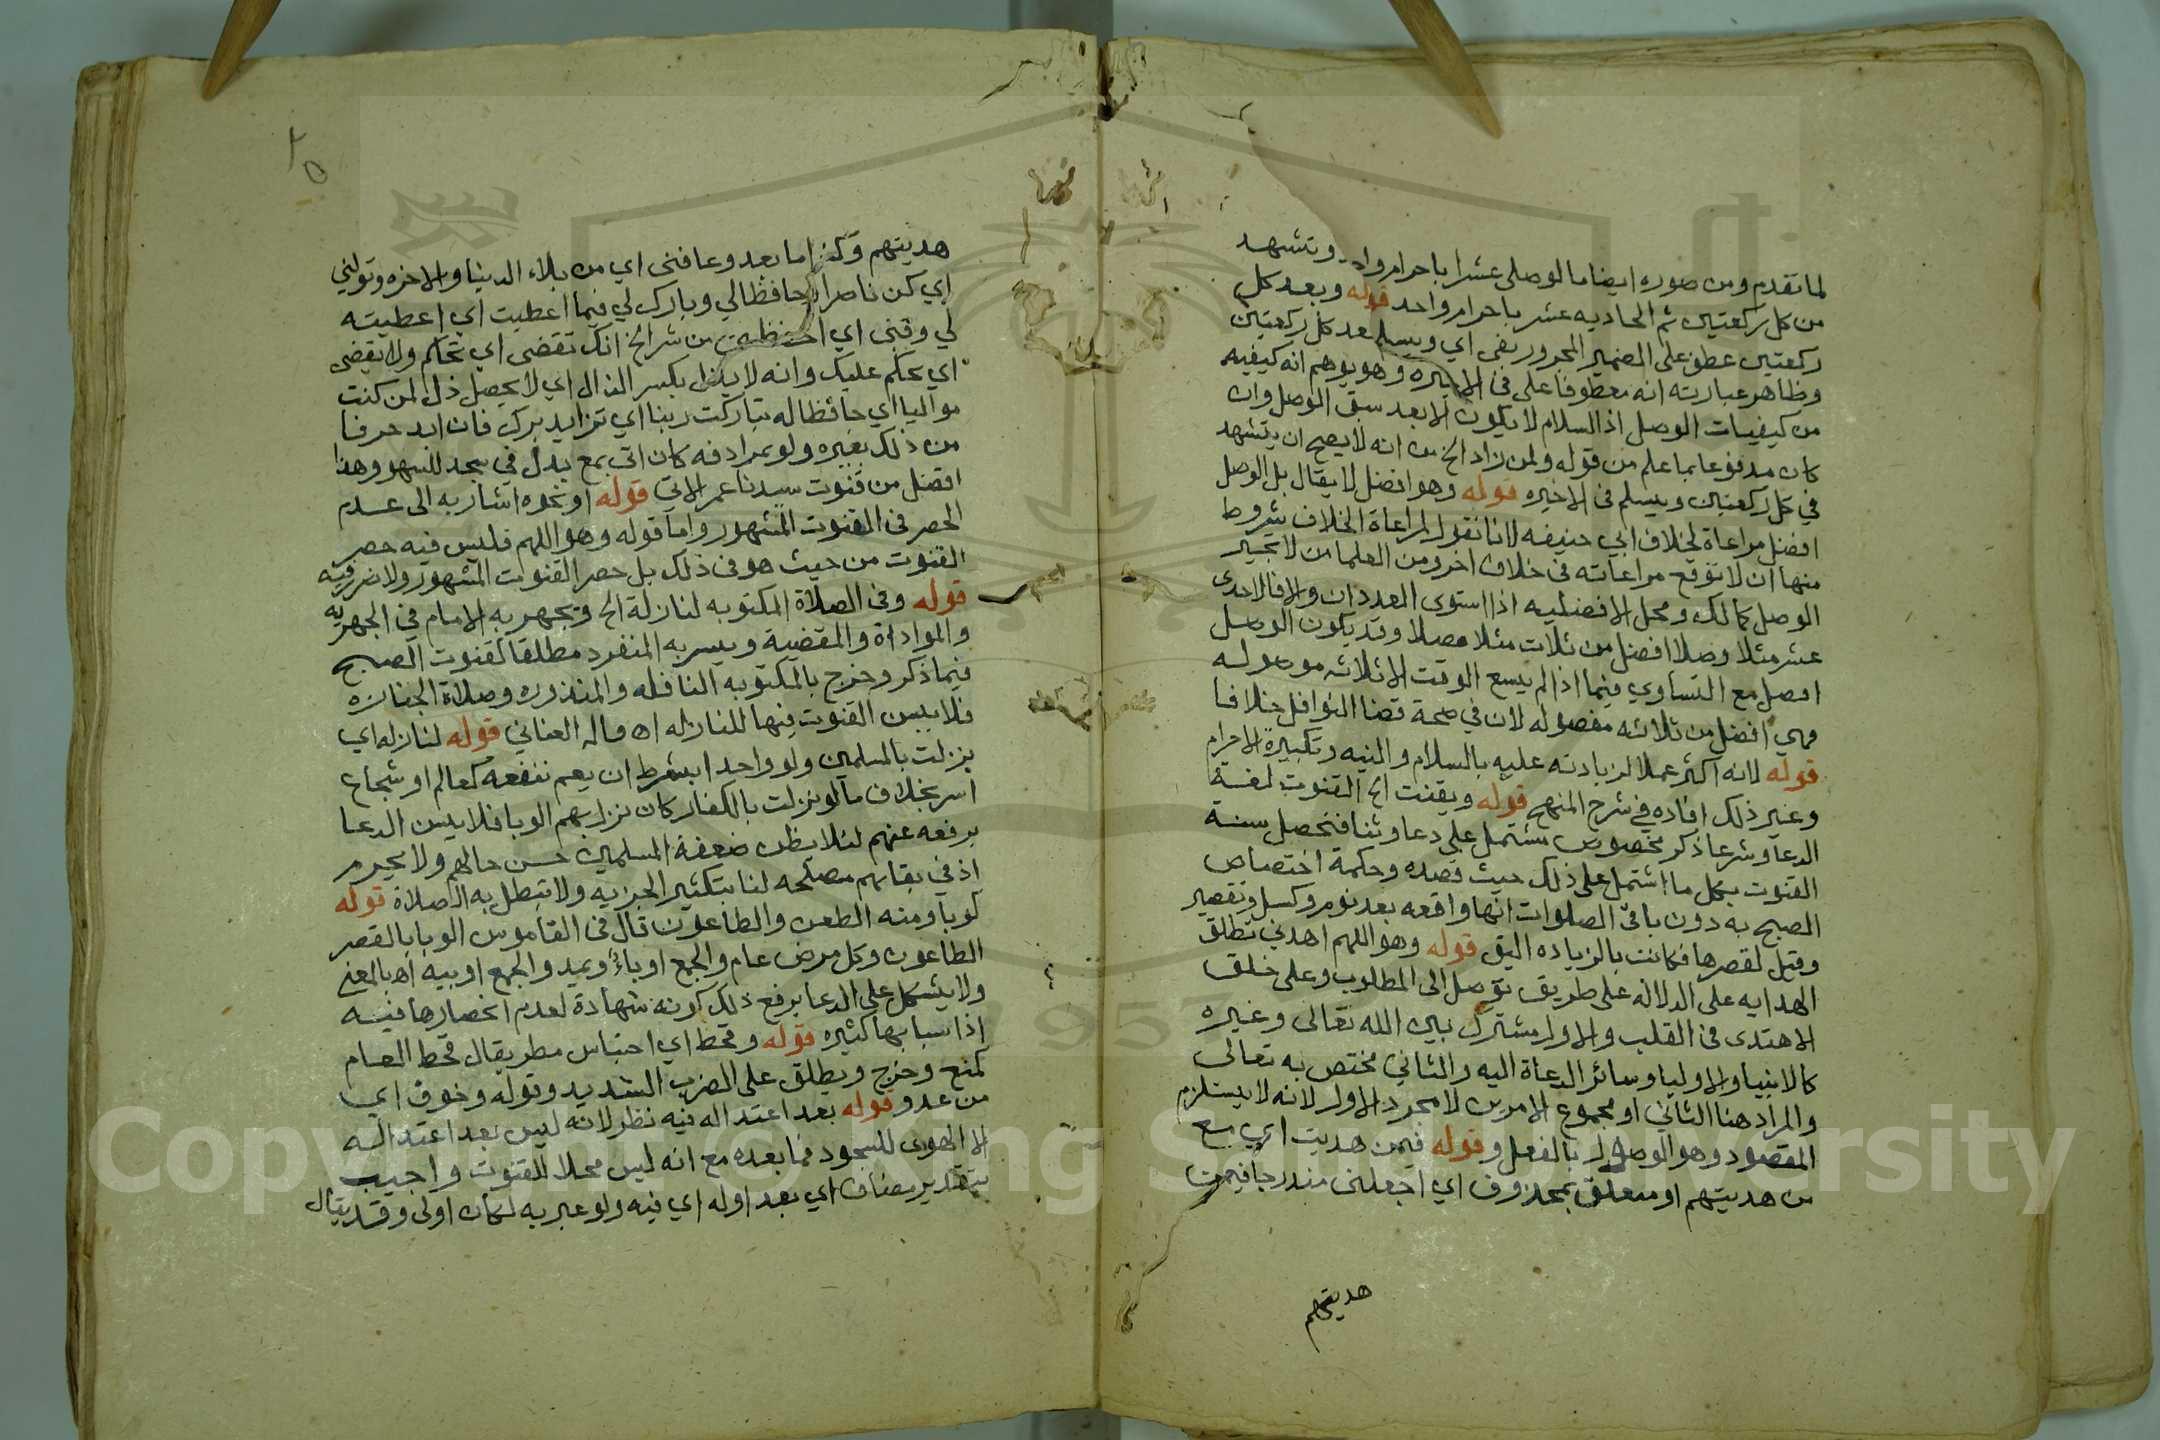 لما تقدم ومن صوره ايضا ما لو صلى عشرا باحرام واحد وتشهد
من كل ركعتين ثم الحاديه عشر باحرام واحد قوله وبعد كل
ركعتين عطف على الضمير المجرور بفى اي ويسلم بعد كل ركعتين
وظاهر عبارته انه معطوفا على فى الاخيره وهو يوهم انه كيفيه
من كيفيات الوصل اذ السلام لا يكون الا بعد سبق الوصل وان
كان مدفوعا بما علم من قوله ولمن زاد الخ من انه لا يصح ان يتشهد
في كل ركعتين ويسلم فى الاخيره قوله وهو افضل لا يقال بل الوصل
افضل مراعاة لخلاف ابي حنيفه لانا نقول لمراعاة الخلاف شروط
منها ان لا توقع مراعاته فى خلاف اخر ومن العلما من لا يجيز
الوصل كمالك ومحل الافضليه اذا استوى العددان والا فالاحدى
عشر مثلا وصلا افضل من ثلاث مثلا فصلا وقد يكون الوصل
افضل مع التساوي فيما اذا لم يسع الوقت الا ثلاثه موصوله
فهي افضل من ثلاثه مفصوله لان في صحة قضا النوافل خلافا
قوله لانه اكثر عملا لزيادته عليه بالسلام والنيه وتكبيرة الاحرام
وغير ذلك افاده في شرح المنهج قوله ويقنت الخ القنوت لغة
الدعا وشرعا ذكر مخصوص مشتمل على دعا وثنا فتحصل سنة
القنوت بكل ما اشتمل على ذلك حيث قصده وحكمة اختصاص
الصبح به دون باقى الصلوات انها واقعه بعد نوم وكسل وتقصير
وقيل لقصرها فكانت بالزياده اليق قوله وهو اللهم اهدني تطلق
الهدايه على الدلاله على طريق توصل الى المطلوب وعلى خلق
الاهتدى فى القلب والاول مشترك بين الله تعالى وغيره
كالانبيا والاوليا وسائر الدعاة اليه والثاني مختص به تعالى
والمراد هنا الثاني او مجموع الامرين لا مجرد الاول لانه لا يستلزم
المقصود وهو الوصول بالفعل وقوله فيمن هديت اي مع
من هديتهم او متعلق بمحذوف اي اجعلنى مندرجا فيمن
هديتهم
٢٥
هديتهم وكذا ما بعد وعافنى اي من بلاء الدنيا والاخره وتولني
اي كن ناصرا حافظا لي وبارك لي فيما اعطيت اي اعطيته
لي وقنى اي احفظني من شر الخ انك تقضى اي تحكم ولا يقضى
اي يحكم عليك وانه لا يذل بكسر الذال اي لا يحصل ذل لمن كنت
مواليا اي حافظا له تباركت ربنا اي تزايد برك فان ابدل حرفا
من ذلك بغيره ولو بمرادفه كان اتى بمع بدل في سجد للسهو وهذا
افضل من قنوت سيدنا عمر الاتي قوله او نحوه اشار به الى عدم
الحصر فى القنوت المشهور واما قوله وهو اللهم فليس فيه حصر
القنوت من حيث هو فى ذلك بل حصر القنوت المشهور ولا ضرر فيه
قوله وفى الصلاة المكتوبه لنازلة الخ ويجهر به الامام في الجهريه
والمواداة والمقضية ويسر به المنفرد مطلقا كقنوت الصبح
فيما ذكر وخرج بالمكتوبه النافله والمنذوره وصلاة الجنازه
فلا يسن القنوت فيها للنازله اه قاله العناني قوله لنازله اي
نزلت بالمسلمين ولو واحدا بشرط ان يعم نفعه كعالم او شجاع
اسر بخلاف ما لو نزلت بالكفار كان نزل بهم الوبا فلا يسن الدعا
برفعه عنهم لئلا يظن ضعفة المسلمين حسن حالهم ولا يحرم
اذ في بقائهم مصلحه لنا بتكثير الجزيه ولا تبطل به الصلاة قوله
كوبا ومنه الطعن والطاعون قال فى القاموس الوبا بالقصر
الطاعون وكل مرض عام والجمع اوباء ويمد والجمع اوبيه اه بالمعنى
ولا يشكل على الدعا برفع ذلك كونه شهادة لعدم انحصارها فيه
اذ اسبابها كثيره قوله وقحط اي احتباس مطر يقال قحط العام
كمنع وخرج ويطلق على الضرب الشديد وقوله وخوف اي
من عدو قوله بعد اعتداله فيه نظر لانه ليس بعد اعتداله
الا الهوى للسجود فما بعده مع انه ليس محلا للقنوت واجيب
بتقدير مضاف اي بعد اوله اي فيه ولو عبر به لكان اولى وقد يقال
Copyright © King Saud University
1957